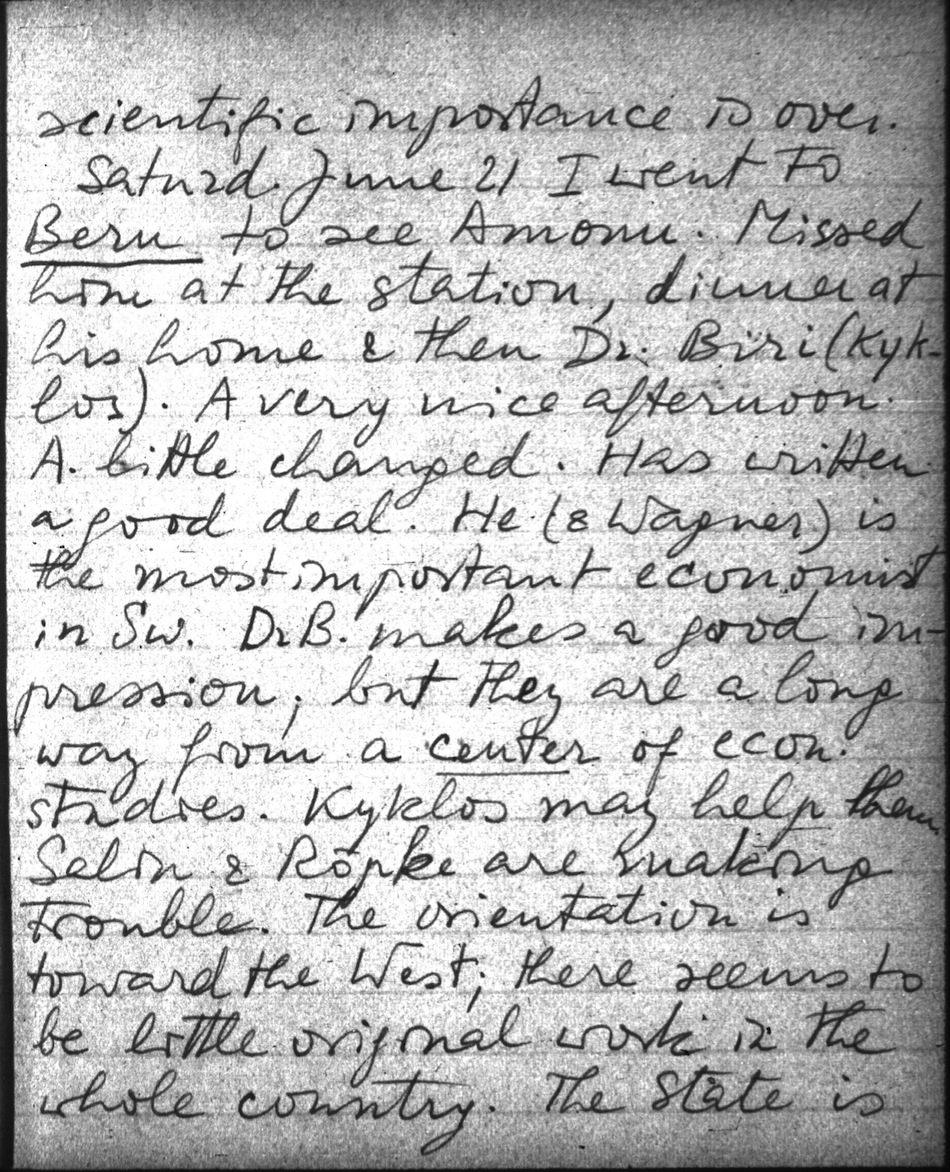 scientific importance is over.
Saturd. June 21 I went to
Bern to see Amonn. Missed
him at the station, dinner at
his home & then Dr. Biri (Kyk-
los). A very nice afternoon.
A. little changed. Has written
a good deal. He (& Wagner) is
the most important economist
in Sw. Dr B. makes a good im-
pression; but they are a long
way from a center of econ.
studies. Kyklos may help them.
Salin & Röpke are making
trouble. The orientation is
toward the West; there seems to
be little original work in the
whole country. The State is